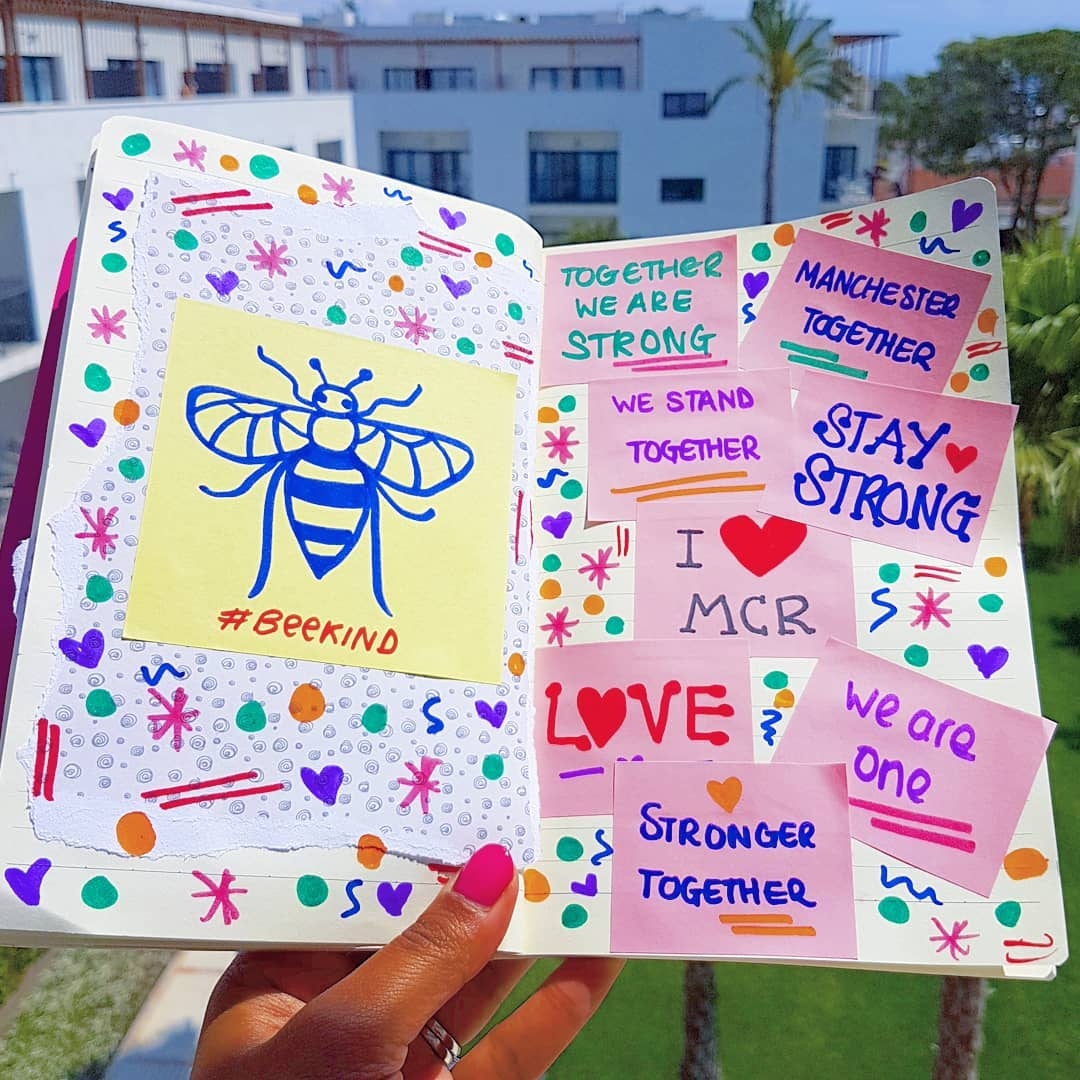 #BeeKIND
TOGETHER
WE ARE
STRONG
MANCHESTER
TOGETHER
WE STAND
TOGETHER
STAY
STRONG
I ♥
MCR
LOVE
we are
one
STRONGER
TOGETHER